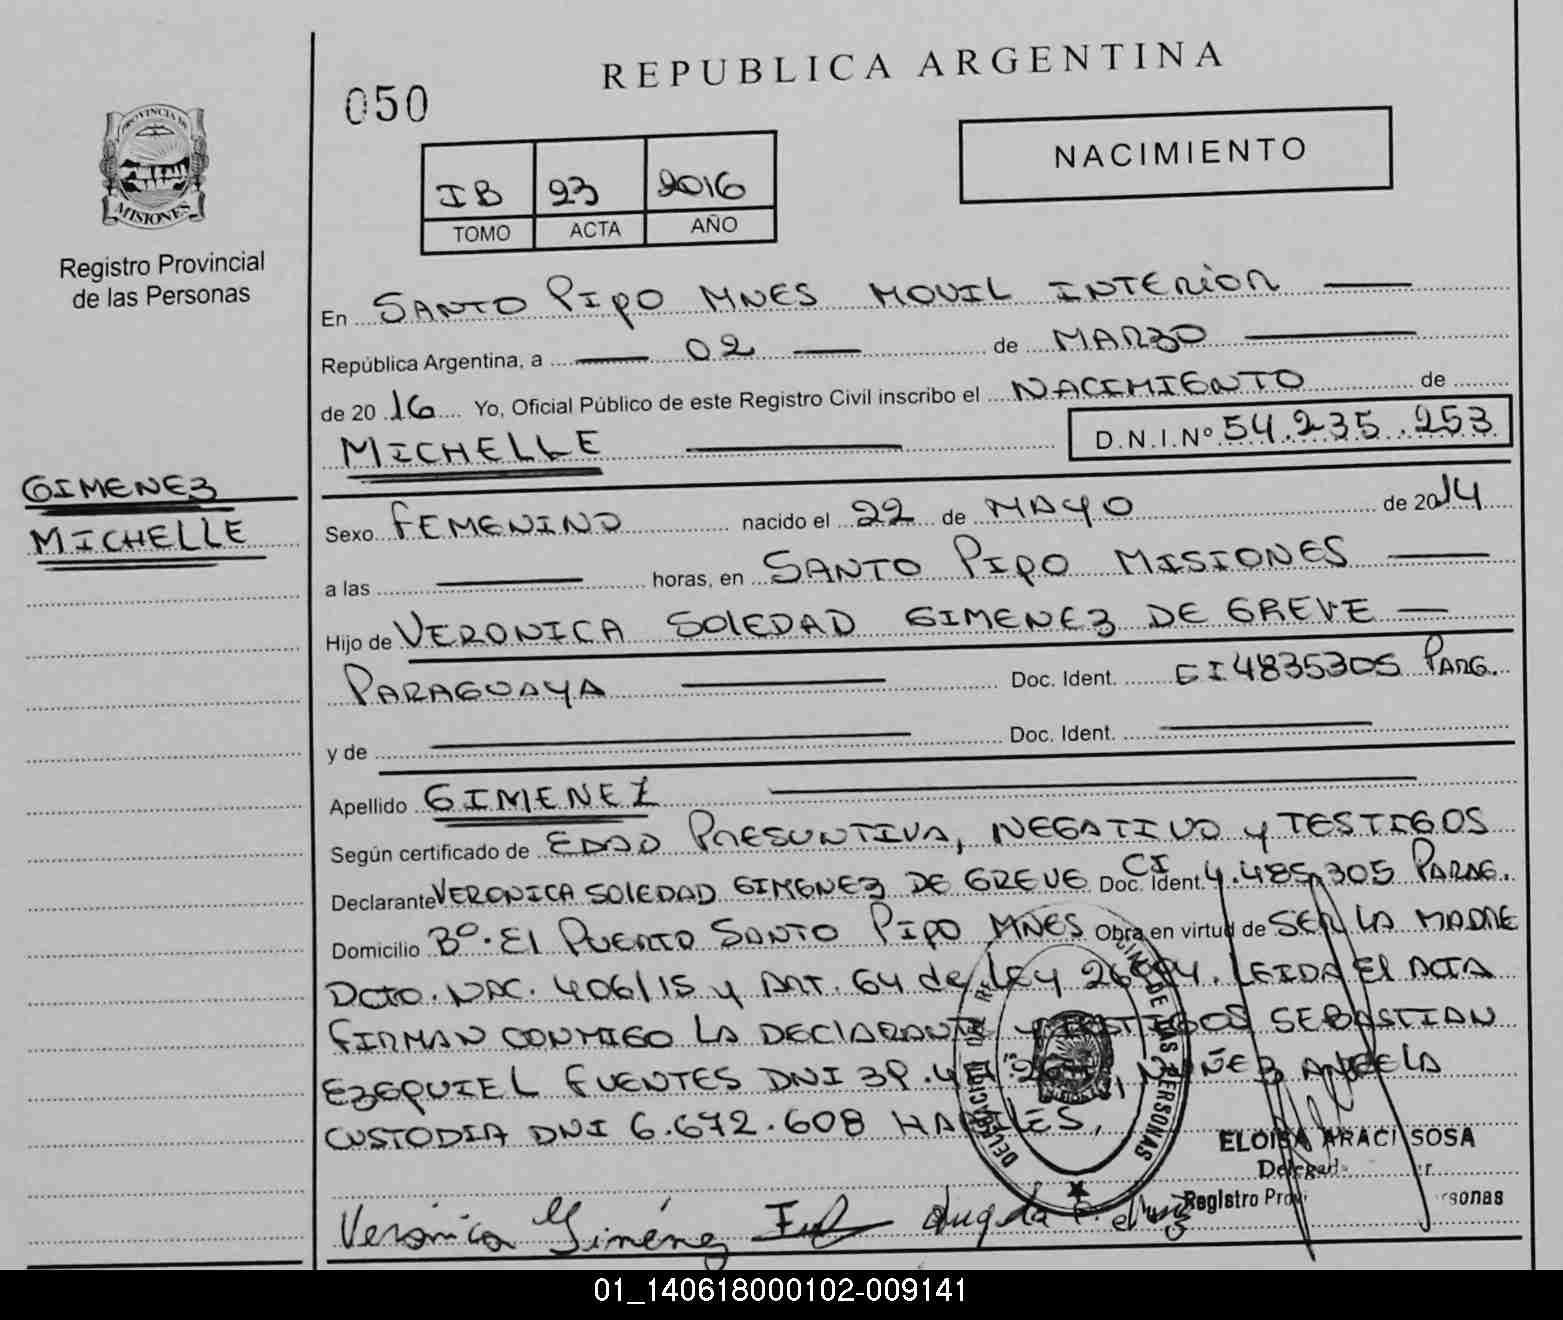 REPUBLICA ARGENTINA
050
NACIMIENTO
IB 23 2016
TOMO ACTA AÑO
PROVINCIA DE
MISIONES
Registro Provincial
de las Personas
GIMENEZ
MICHELLE
En SANTO PIPO MNES MOVIL INTERIOR
República Argentina, a 02 de MARZO
de 20 16 Yo, Oficial Público de este Registro Civil inscribo el NACIMIENTO de
MICHELLE D.N.I.Nº 54.235.253
Sexo FEMENINO nacido el 22 de MAYO de 2014
a las horas, en SANTO PIPO MISIONES
Hijo de VERONICA SOLEDAD GIMENEZ DE GREVE
PARAGUAYA Doc. Ident. CI 4835305 PARG.
y de Doc. Ident.
Apellido GIMENEZ
Según certificado de EDAD PRESUNTIVA, NEGATIVO y TESTIGOS
Declarante VERONICA SOLEDAD GIMENEZ DE GREVE Doc. Ident. CI 4.485.305 PARAG.
Domicilio Bº. El PUERTO SANTO PIPO MNES Obra en virtud de SER LA MADRE
Dcto. NAC. 406/15 y ART. 64 de ley 26994. LEIDA El ACTA
FIRMAN CONMIGO LA DECLARANTE y TESTIGOS SEBASTIAN
EZEQUIEL FUENTES DNI NUÑEZ ANGELA
CUSTODIA DNI 6.672.608 HABILES,
ELOISA ARACI SOSA
Registro Prov
sonas
Verónica Giménez Angela
DE LAS PERSONAS
01_140618000102-009141